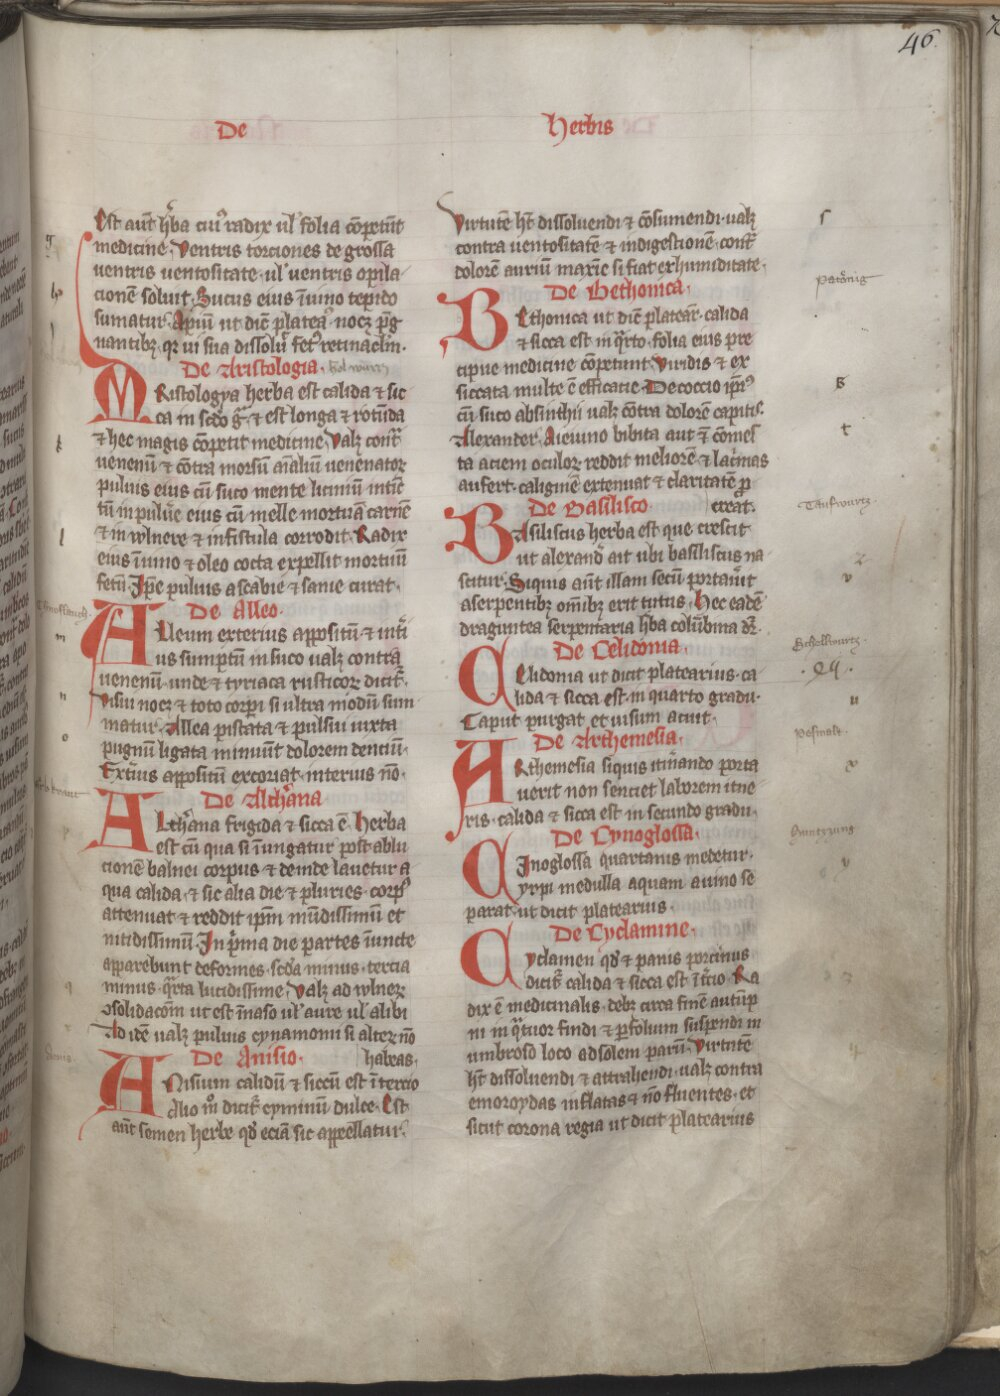 46
De Herbis
Est aūt hͣba cuiꝰ radix ul' folia cōpetūt
medicine Ventris torciones de grossa
ventris ventositate ul' ventris opila
cionē soluit Sucus eius ī uino tepido
sumatur Apiū ut dic̄ plateaꝰ nocꝫ p̄g
nantibꝫ qꝛ ui sua dissolū fetꝰ retinacl'm
De Aristologia holwurtz
Ristologya herba est calida ⁊ sic
ca in scd̄o gͣ ⁊ est longa ⁊ rotūda
⁊ hec magis cōpetit medicine Valꝫ cont̄
uenenū ⁊ cōtra morsū aīaliū uenenatoꝝ
puluis eius cū suco mente
tū in puluē eius cū melle mortuā carnē
⁊ in wlnere ⁊ in fistula corrodit Radix
eius ī uino ⁊ oleo cocta expellit mortuū
fetū Ip̄e puluis a scabie ⁊ sanie curat
De Alleo
Lleum exterius appositū ⁊ inti
us sumptū in suco ualꝫ contra
uenenū unde ⁊ tyriaca rusticoꝝ dicit̄
Visui nocꝫ ⁊ toto corpi si ultra modū sum
matur Allea pistata ⁊ pulsui iuxta
pugnū ligata minuūt dolorem dentiū
Ext̄ius appositū excoriat interius nō
De Alchāna
Lchāna frigida ⁊ sicca ē Herba
est cū qua si ī ungatur post ablu
cionē balnei corpus ⁊ deinde lauetur a
qua calida ⁊ sic alia die ⁊ pluries corpꝰ
attenuat ⁊ reddit ip̄m mūdissimū et
nitidissimū In p̄ma die partes īuncte
apparebunt deformes scd̄a minus tercia
minus qͣrta lucidissime Valꝫ ad wlneꝝ
ꝯsolidacōm ut est ī naso ul' aure ul' alibi
Ad idē ualꝫ puluis cynamomi si alteꝝ nō
De Anisio habeas
Nisium calidū ⁊ siccū est ī tercio
Alio m̊ dicit̄ cyminū dulce Est
aūt semen herbe qd̄ eciā sic appellatur
Virtutē ht̄ dissoluendi ⁊ cōsumendi ualꝫ
contra uentositatē ⁊ indigestionē cont̄
dolorē auriū maxīe si fiat ex humiditate
De Bethonica
Ethonica ut dic̄ platear̄ calida
⁊ sicca est in qͣrto folia eius pre
cipue medicine cōpetunt Viridis ⁊ ex
siccata multe ē efficacie Decoccio ip̄iꝰ
cū suco absinthii ualꝫ cōtra dolorē capitis
Alexander A ieiuno bibita aut ī comes
ta aciem oculoꝝ reddit meliorē ⁊ lac̄imas
aufert caliginē extenuat ⁊ claritatē p
De Basilisco creat
Asiliscus herba est que crescit
ut alexand̄ ait ubi basiliscus na
scitur Siquis aūt illam secū portau̅it
a serpentibꝫ om̄ibꝫ erit tutus Hec eadē
draguntea serpentaria hͣba colūbina dr̄
De Celidonia
Elidonia ut dicit platearius ca
lida ⁊ sicca est in quarto gradu
Caput purgat et uisum acuit
De Arthemesia
Rthemesia siquis itin̄ando porta
uerit non senciet laborem itne
ris calida ⁊ sicca est in secundo gradu
De Cynoglossa
Inoglossa quartanis medetur
Cyrpi medulla aquam a uino se
parat ut dicit platearius
De Cyclamine
Yclamen qd̄ ⁊ panis porcinus
dicit̄ calida ⁊ sicca est ī t̄cio Ra
dix ē medicinalis debꝫ circa finē autūp
ni in qͣtuor findi ⁊ p̄ folium suspendi in
umbroso loco ad solem parū Virtutē
ht̄ dissoluendi ⁊ attrahendi ualꝫ contra
emoroydas inflatas ⁊ nō fluentes et
sicut corona regia ut dicit platearius